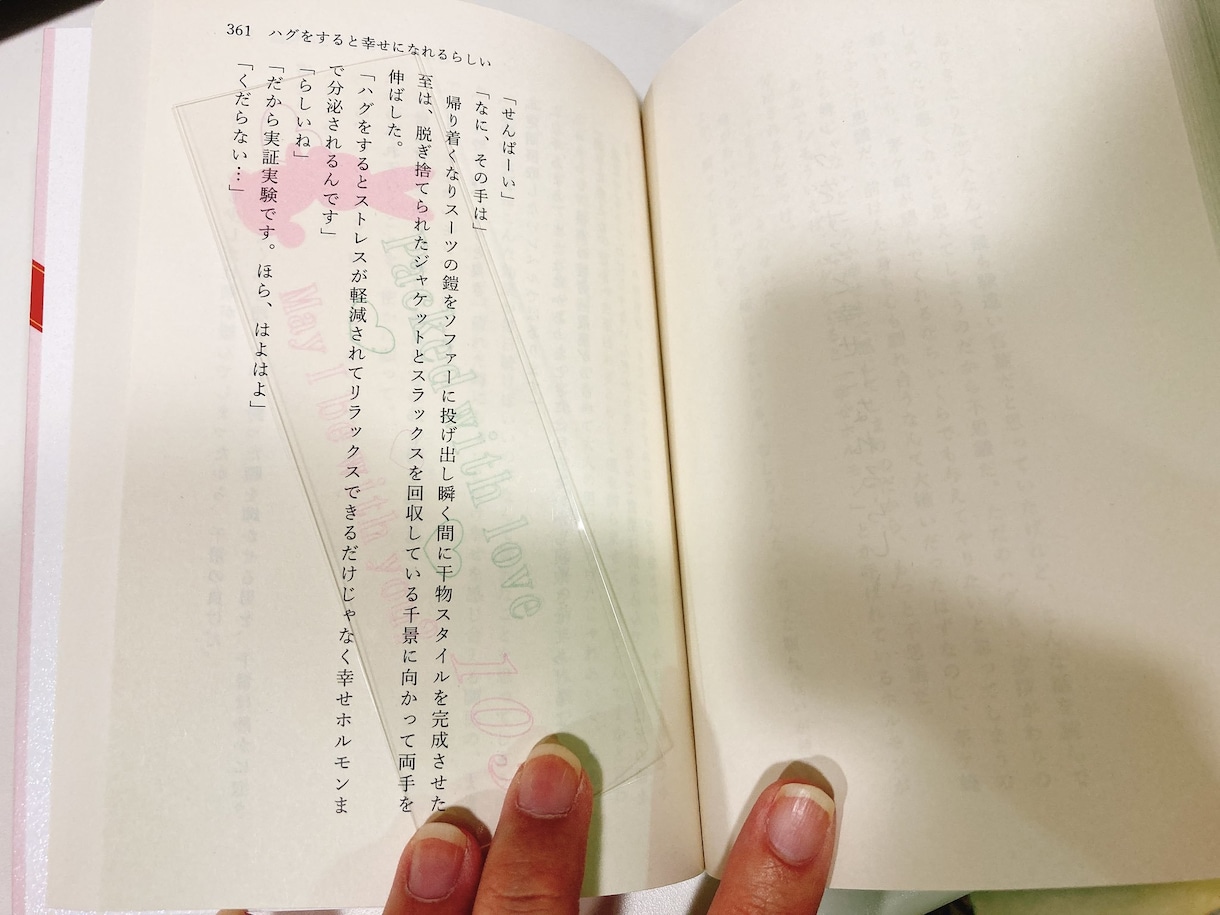 361 ハグをすると幸せになれるらしい
「せんぱーい」
「なに、その手は」
帰り着くなりスーツの鎧をソファーに投げ出し瞬く間に干物スタイルを完成させた
至は、脱ぎ捨てられたジャケットとスラックスを回収している千景に向かって両手を
伸ばした。
「ハグをするとストレスが軽減されてリラックスできるだけじゃなく幸せホルモンま
で分泌されるんです」
「らしいね」
「だから実証実験です。ほら、はよはよ」
「くだらない…」
Packed with love
May I be with you